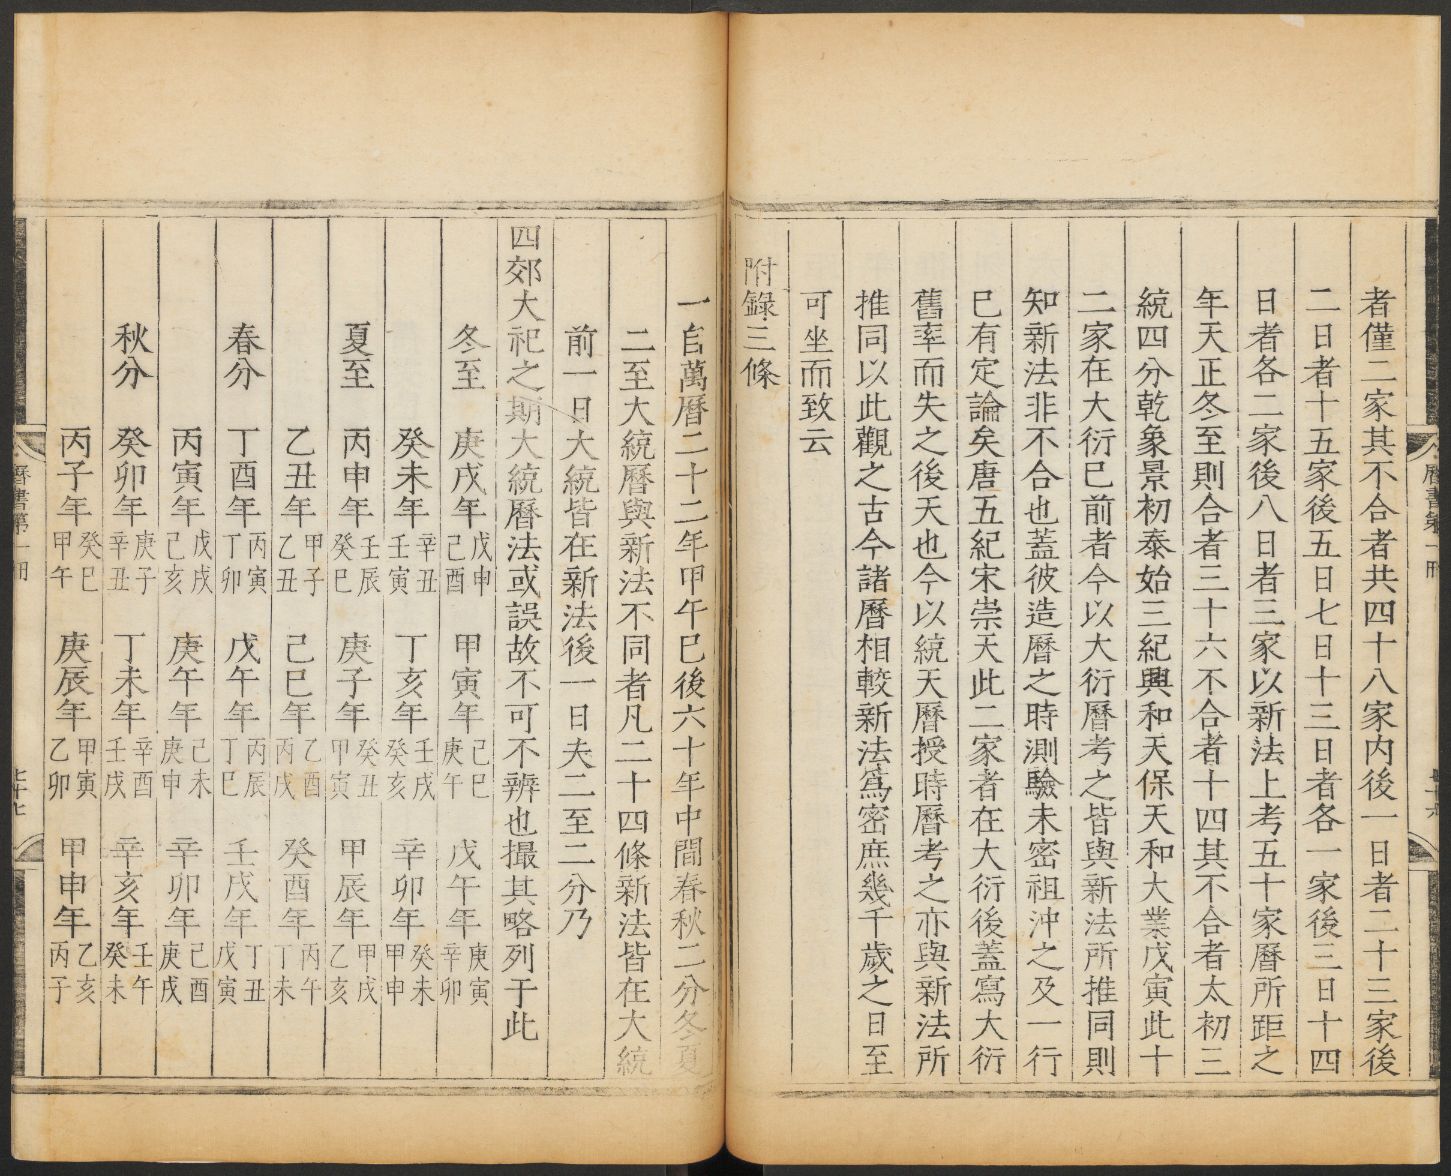 者僅二家其不合者共四十八家内後一日者二十三家後
二日者十五家後五日七日十三日者各一家後三日十四
日者各二家後八日者三家以新法上考五十家曆所距之
年天正冬至則合者三十六不合者十四其不合者太初三
統四分乾象景初泰始三紀興和天保天和大業戊寅此十
二家在大衍已前者今以大衍曆考之皆與新法所推同則
知新法非不合也蓋彼造曆之時測驗未密祖沖之及一行
已有定論矣唐五紀宋崇天此二家者在大衍後蓋寫大衍
舊率而失之後天也今以統天曆授時曆考之亦與新法所
推同以此觀之古今諸曆相較新法爲密庶幾千歲之日至
可坐而致云
附錄三條
曆書第一冊
七十六
一自萬曆二十二年甲午巳後六十年中間春秋二分冬夏
二至大統曆與新法不同者凡二十四條新法皆在大統
前一日大統皆在新法後一日夫二至二分乃
四郊大祀之期大統曆法或誤故不可不辨也撮其略列于此
冬至 庚戌年 戊申 己酉 甲寅年 己巳 庚午 戊午年 庚寅 辛卯
癸未年 辛丑 壬寅 丁亥年 壬戌 癸亥 辛卯年 癸未 甲申
夏至 丙申年 壬辰 癸巳 庚子年 癸丑 甲寅 甲辰年 甲戌 乙亥
乙丑年 甲子 乙丑 己巳年 乙酉 丙戌 癸酉年 丙午 丁未
春分 丁酉年 丙寅 丁卯 戊午年 丙辰 丁巳 壬戌年 丁丑 戊寅
丙寅年 戊戌 己亥 庚午年 己未 庚申 辛卯年 己酉 庚戌
秋分 癸卯年 庚子 辛丑 丁未年 辛酉 壬戌 辛亥年 壬午 癸未
丙子年 癸巳 甲午 庚辰年 甲寅 乙卯 甲申年 乙亥 丙子
曆書第一冊
七十七